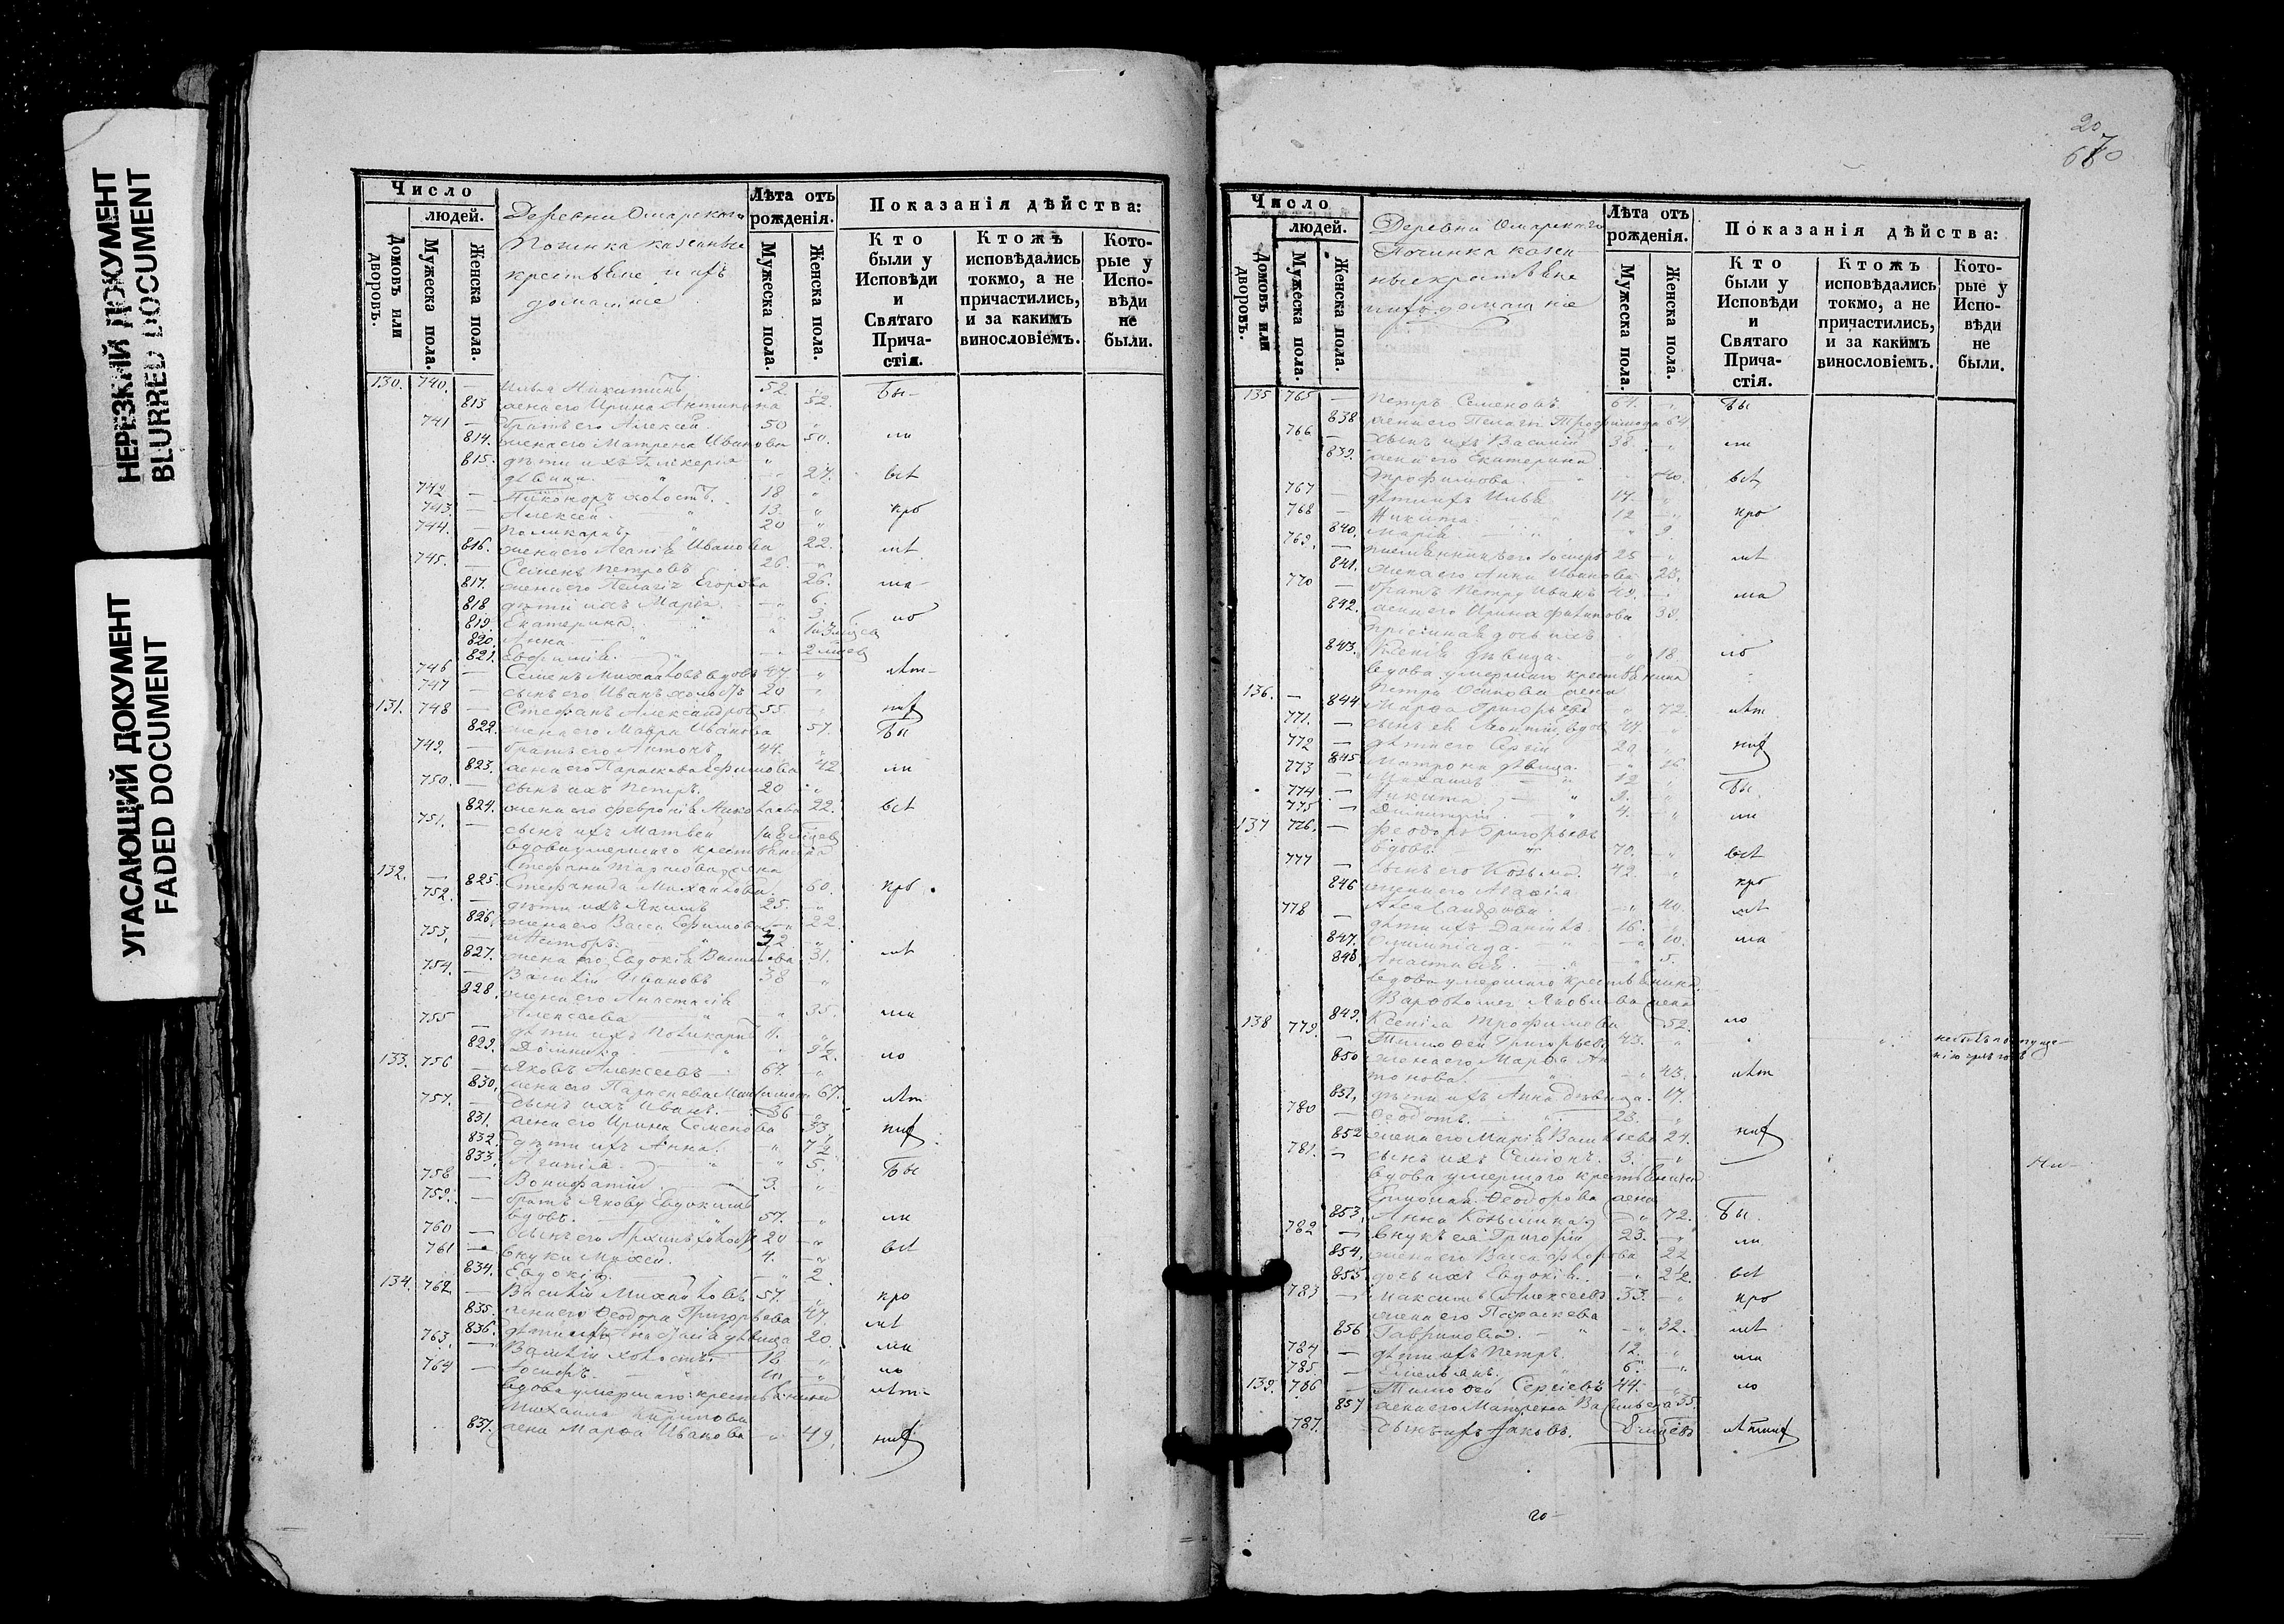 НЕРЕЗКИЙ ДОКУМЕНТ
BLURRED DOCUMENT
УГАСАЮЩИЙ ДОКУМЕНТ
FADED DOCUMENT
Число
людей.
Домовъ или дворовъ.
Мужеска пола.
Женска пола.
Деревни Омарскаго
Починка казенные
крестьяне и ихъ
домашніе
Лѣта отъ рожденія.
Мужеска пола.
Женска пола.
Показанія дѣйства:
Кто были у Исповѣди и Святаго Прича-стія.
Ктожъ исповѣдались токмо, а не причастились, и за какимъ винословіемъ.
Кото-рые у Испо-вѣди не были.
130. 740. — Илья Никитинъ 52. „ Бы-
813 жена его Ирина Антипина 52
741 — братъ его Алексей. 50 „
814. жена его Матрена Иванова 50. ли
815. дѣти ихъ Гликерія „
дѣвица. 27. всѣ
742 — Никоноръ холостъ. 18 „
743. — Алексей. 13. „ кро
744. — Поликарпъ 20 „
816. жена его Агапія Иванова 22. мѣ
745. — Семенъ Петровъ 26. „
817. жена его Пелагія Егорова 26. ма-
818 дѣти ихъ Марія. 6.
819. Екатерина. 3. ло
820. Анна
821. Евфимія. 2 мѣсец
746 — Семенъ Михайловъ вдовъ 47 „ лѣт-
747 — сынъ его Иванъ холостъ 20 „
131. 748 — Стефанъ Александровъ 55. ниф
822. жена его Мавра Иванова 57. Бы
749. — братъ его Антонъ 44. „
823. жена его Параскева Ефимова 42 ли
750. — сынъ ихъ Петръ. 20 „
824. жена его Февронія Николаева 22. всѣ
751. — сынъ ихъ Матвей
вдова умершаго крестьянина
132. — 825. Стефанида Михайлова. 60. кро.
752. — дѣти ихъ Якимъ 25. „
826. жена его Васса Ефимова 22.
753. — Несторъ. 32 „
827. жена его Евдокія 31. мѣ
754. — Василій Ивановъ 38 „
828. жена его Анастасія
Алексеева 35. ма
755 — дѣти ихъ Поликарпъ 11. „
829. Домника 9½ ло
133. 756 — Яковъ Алексеевъ 67. „
830. жена его Параскева Максимова 67. лѣт
757. — сынъ ихъ Иванъ. 36 „
831. жена его Ирина Семенова 33 ниф
832. дѣти ихъ Анна. 7½
833. Агапія. 5. Бы
758 — Вонифатій. 3. „
759. — братъ Якову Евдокимъ
вдовъ. 57. „ ли
760 — сынъ его Архипъ холостъ 20 „
761 — внуки Мокей. 4. „ всѣ
834. Евдокія 2.
134. 762 — Василій Михайловъ 57. „ кро
835. жена его Ѳеодора Григорьева 47. мѣ
836. дѣти ихъ Анастасія дѣвица 20.
763. — Василій холостъ 18 „ ма
764 — Іосифъ. 10 „ ло
вдова умершаго крестьянина лѣт-
Михаила Кирилова
837. жена Марѳа Иванова „ 49. ниф
20
70
Число
людей.
Домовъ или дворовъ.
Мужеска пола.
Женска пола.
Деревни Омарскаго
Починка казен
ные крестьяне
и ихъ домашніе
Лѣта отъ рожденія.
Мужеска пола.
Женска пола.
Показанія дѣйства:
Кто были у Исповѣди и Святаго Прича-стія.
Ктожъ исповѣдались токмо, а не причастились, и за какимъ винословіемъ.
Кото-рые у Испо-вѣди не были.
135 765 — Петръ Семеновъ 64. „ Бы
838 жена его Пелагія Трофимова 64
766 — сынъ ихъ Василій 38. „ ли
839. жена его Екатерина
Трофимова 40. всѣ
767 — дѣти ихъ Илья 17. „
768 — Никита. 12 „ кро
840. Марія 9.
769. — племянникъ его Іосифъ 25 „ мѣ
841. жена его Анна Иванова 23.
770 — братъ Петру Иванъ 49. „ ма
842. жена его Ирина Филипова 39.
843. Ксенія дѣвица. 18. ло
вдова умершаго крестьянина
136. — 844 Петра Осипова жена
Марѳа Григорьева 72. лѣт
771. — сынъ ея Леонтій вдов 47. „
772 — дѣти его Сергій 20 „ ниф
845 Матрона дѣвица. 16
773 — Михаилъ 12 „
774 — Никита 9. „ Бы
775 — Димитрій. 4. „ ли
137 776. — Ѳеодоръ Григорьевъ
вдовъ. 70. „ всѣ
777 — сынъ его Козьма. 42. „
846 жена его Агафія кро
Александрова 40. мѣ
778 — дѣти ихъ Даніилъ 16. „
847. Олимпіада. 10. ма
848. Анастасія 5.
вдова умершаго крестьянина
Варфоломея Яковлева жена
138 849. Ксенія Трофимова 52. ло
779. — Тимофей Григорьевъ 43. „
850 жена его Марѳа Ан
тонова. 43. лѣт
851, дѣти ихъ Анна дѣвица. 17.
780 — Ѳеодотъ. 23. „
852 жена его Марія Васильева 24. ниф
781. — сынъ ихъ Семіонъ. 3. „
вдова умершаго крестьянина
853, Анна Козьмина 72. Бы
782 — внукъ ея Григорій 23. „ ли
854, жена его Васса 22
855 дочь ихъ Евдокія. 2½. всѣ
783 — Максимъ Алексеевъ 33. „ кро
жена его Параскева
856 Гаврилова. 32. мѣ
784 — дѣти ихъ Петръ. 12. „ ма
785. — Емельянъ. 6. „
139. 786 — Тимофей Сергіевъ 44. „ ло
857 жена его Матрена Васильева 35.
787. сынъ ихъ Яковъ. 8 мѣсец
20